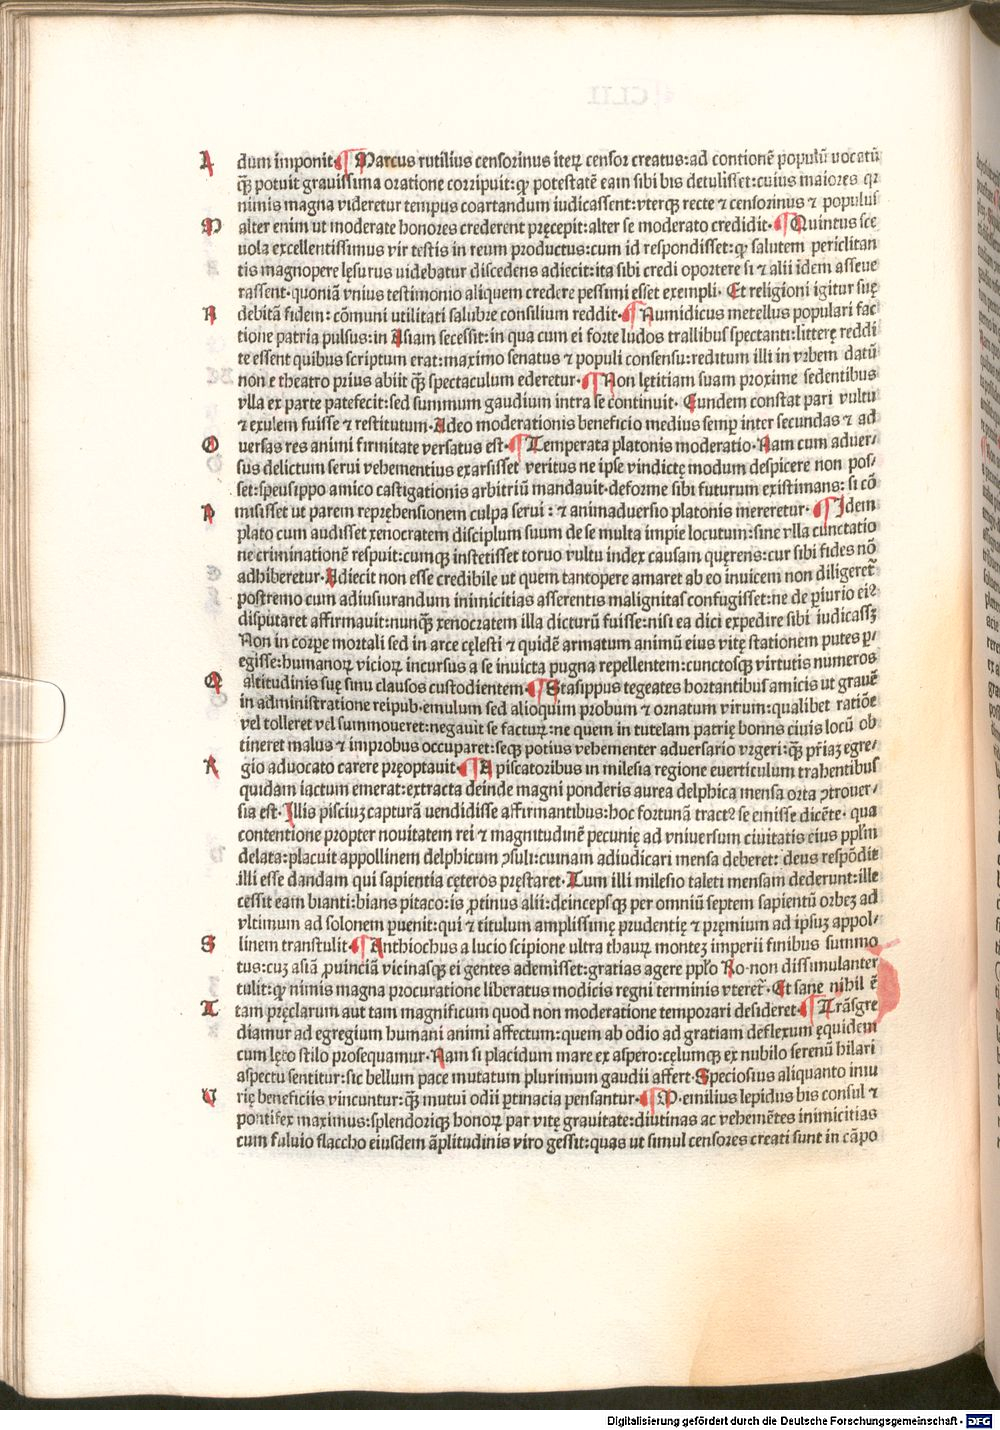 L dum imponit. ¶ Marcus rutilius censorinus iteꝝ censor creatus: ad contionē populū uocatū
q̄ꝫ potuit grauissima oratione corripuit: ꝙ potestatē eam sibi bis detulisset: cuius maiores qꝛ
nimis magna videretur tempus coartandum iudicassent: vterqꝫ recte ⁊ censorinus ⁊ populus
M alter enim ut moderate honores crederent pręcepit: alter se moderato credidit. ¶ Quintus sce
uola excellentissimus vir testis in reum productus: cum id respondisset: ꝙ salutem periclitan
tis magnopere lęsurus uidebatur discedens adiecit: ita sibi credi oportere si ⁊ alii idem asseue
rassent. quoniā vnius testimonio aliquem credere pessimi esset exempli. Et religioni igitur suę
N debitā fidem: cōmuni utilitati salubre consilium reddit. ¶ Numidicus metellus populari fac
tione patria pulsus: in Asiam secessit: in qua cum ei forte ludos trallibus spectanti: litterę reddi
te essent quibus scriptum erat: maximo senatus ⁊ populi consensu: reditum illi in vrbem datū
non e theatro prius abiit q̄ꝫ spectaculum ederetur. ¶ Non lętitiam suam proxime sedentibus
vlla ex parte patefecit: sed summum gaudium intra se continuit. Eundem constat pari vultu
⁊ exulem fuisse ⁊ restitutum. Adeo moderationis beneficio medius semꝑ inter secundas ⁊ ad
O uersas res animi firmitate versatus est. ¶ Temperata platonis moderatio. Nam cum aduer/
sus delictum serui vehementius exarsisset veritus ne ipse vindictę modum despicere non pos/
set: speusippo amico castigationis arbitriū mandauit. deforme sibi futurum existimans: si cō
P misisset ut parem repręhensionem culpa serui: ⁊ animaduersio platonis mereretur. ¶ Idem
plato cum audisset xenocratem disciplum suum de se multa impie locutum: sine vlla cunctatio
ne criminationē respuit: cumqꝫ instetisset toruo vultu index causam quęrens: cur sibi fides nō
adhiberetur. Adiecit non esse credibile ut quem tantopere amaret ab eo inuicem non diligeret̄
postremo cum adiusiurandum inimicitias asserentis malignitas confugisset: ne de ꝑiurio ei⁹
disputaret affirmauit: nunq̄ꝫ xenocratem illa dicturū fuisse: nisi ea dici expedire sibi iudicassꝫ
Non in corꝑe mortali sed in arce cęlesti ⁊ quidē armatum animū eius vitę stationem putes ꝑ/
egisse: humanoꝝ vicioꝝ incursus a se inuicta pugna repellentem: cunctosqꝫ virtutis numeros
Q altitudinis suę sinu clausos custodientem. ¶ Stasippus tegeates hortantibus amicis ut grauē
in administratione reipub. emulum sed alioquim probum ⁊ ornatum virum: qualibet ratiōe
vel tolleret vel summoueret: negauit se facturꝝ: ne quem in tutelam patrię bonus ciuis locū ob
tineret malus ⁊ improbus occuparet: seqꝫ potius vehementer aduersario vrgeri: q̄ꝫ pr̄iaꝫ egre/
R gio aduocato carere pręoptauit. ¶ A piscatoribus in milesia regione euerticulum trahentibus
quidam iactum emerat: extracta deinde magni ponderis aurea delphica mensa orta ꝯtrouer/
sia est. Illis pisciuꝫ capturā vendidisse affirmantibus: hoc fortunā tract⁹ se emisse dicēte. qua
contentione propter nouitatem rei ⁊ magnitudinē pecunię ad vniuersum ciuitatis eius ppl̄m
delata: placuit appollinem delphicum ꝯsuli: cuinam adiudicari mensa deberet: deus respōdit
illi esse dandam qui sapientia cęteros pręstaret. Tum illi milesio taleti mensam dederunt: ille
cessit eam bianti: bians pitaco: is ꝓtinus alii: deincepsqꝫ per omniū septem sapientū orbeꝫ ad
vltimum ad solonem ꝑuenit: qui ⁊ titulum amplissimę prudentię ⁊ pręmium ad ipsuꝫ appol/
S linem transtulit. ¶ Anthiochus a lucio scipione ultra thauꝝ monteꝫ imperii finibus summo
tus: cuꝫ asiā ꝓuinciā vicinasqꝫ ei gentes ademisset: gratias agere ppl̄o Ro. non dissimulanter
tulit: ꝙ nimis magna procuratione liberatus modicis regni terminis vteret̄. Et sane nihil ē
T tam pręclarum aut tam magnificum quod non moderatione temporari desideret. ¶ Trāsgre
diamur ad egregium humani animi affectum: quem ab odio ad gratiam deflexum ęquidem
cum lęto stilo prosequamur. Nam si placidum mare ex aspero: cęlumqꝫ ex nubilo serenū hilari
aspectu sentitur: sic bellum pace mutatum plurimum gaudii affert. Speciosius aliquanto iniu
V rię beneficiis vincuntur: q̄ꝫ mutui odii ꝑtinacia pensantur. ¶ M. emilius lepidus bis consul ⁊
pontifex maximus: splendoriqꝫ honoꝝ par vitę grauitate: diutinas ac vehemētes inimicitias
cum fuluio flaccho eiusdem āplitudinis viro gessit: quas ut simul censores creati sunt in cāpo
Digitalisierung gefördert durch die Deutsche Forschungsgemeinschaft - DFG